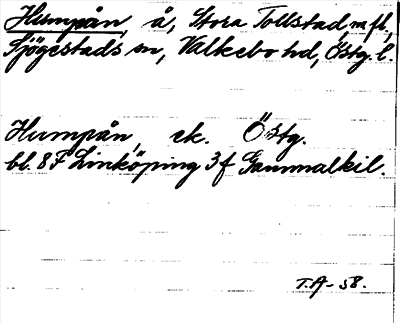 Humpån, å, Stora Tollstad, m fl.,
Sjögestads sn, Valkebo hd, Östg. l.
Humpån, ek. Östg.
bl. 8 F Linköping 3 f Gammalkil.
T.A - 58.